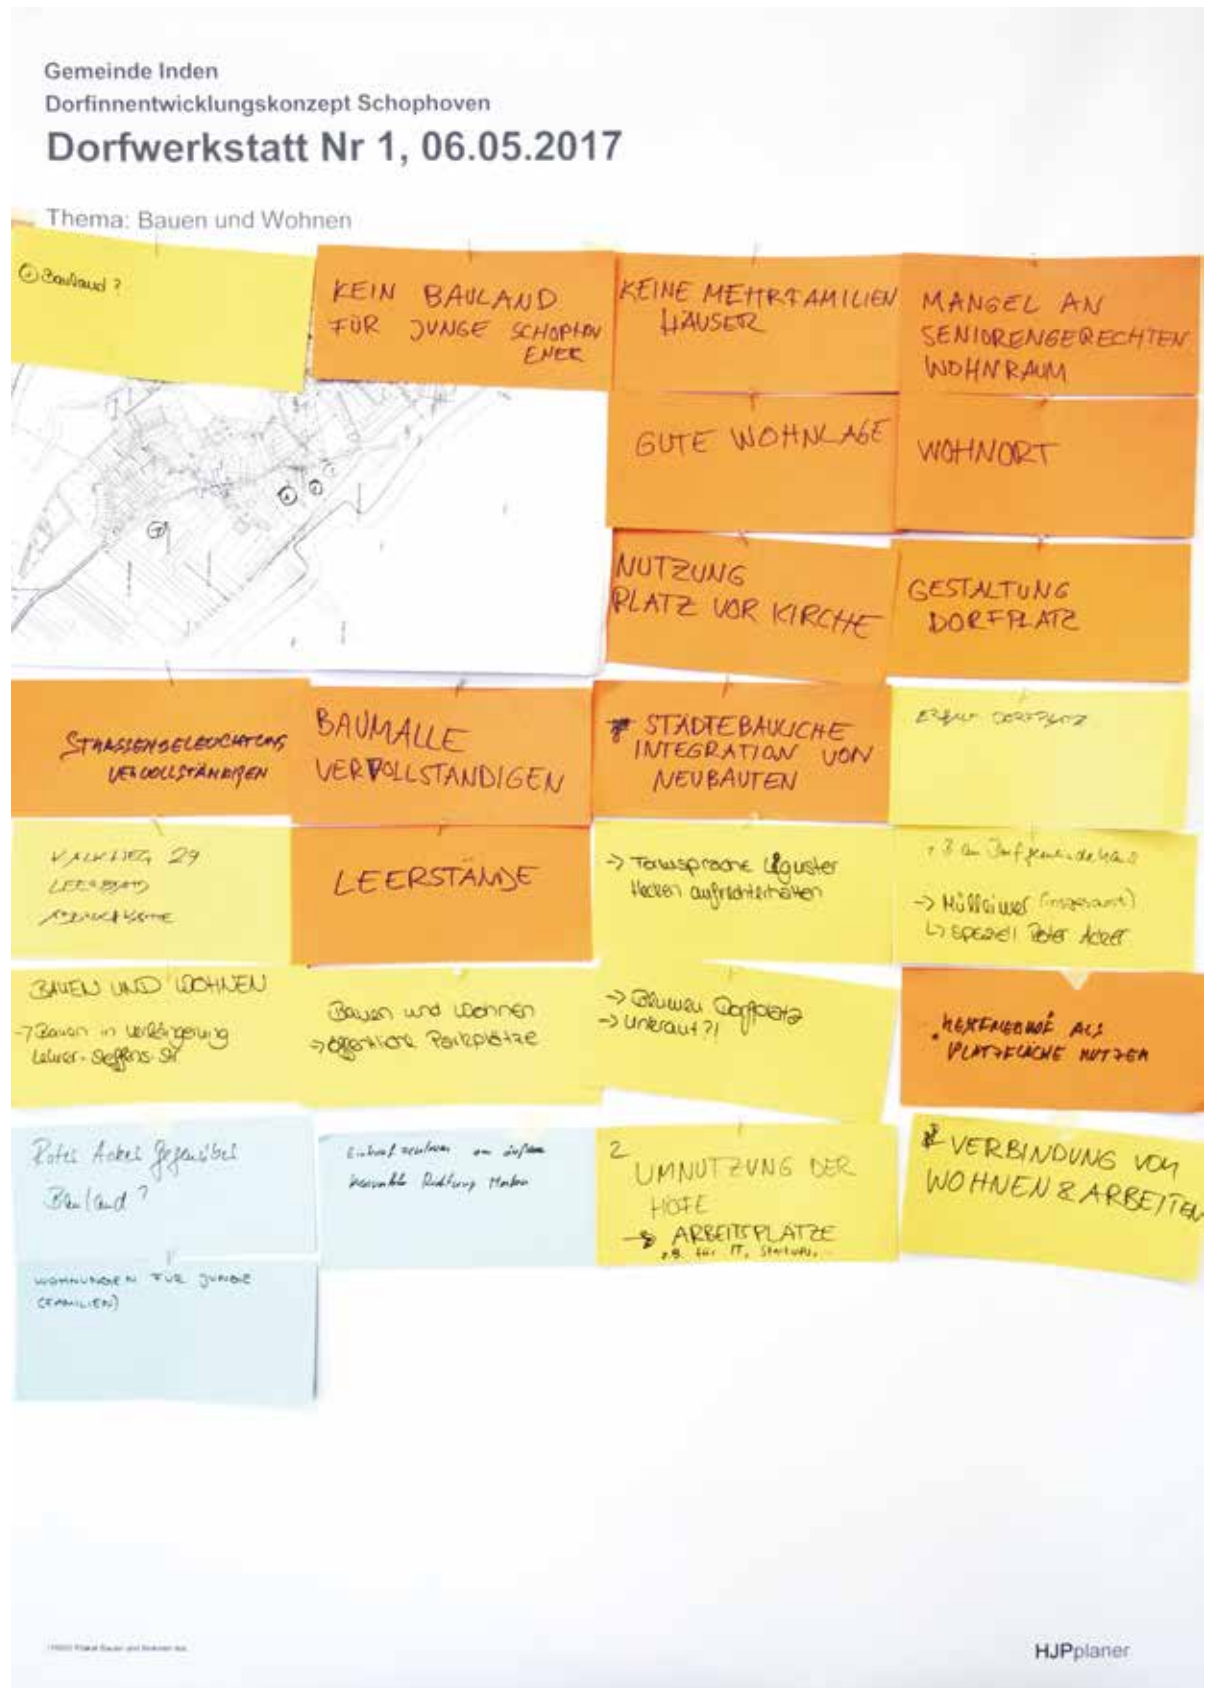 Gemeinde Inden
Dorfinnentwicklungskonzept Schophoven
Dorfwerkstatt Nr 1, 06.05.2017
Thema: Bauen und Wohnen
① Bauland?
KEIN BAULAND
FÜR JUNGE SCHOPHOV
ENER
KEINE MEHRFAMILIEN
HÄUSER
MANGEL AN
SENIORENGERECHTEN
WOHNRAUM
GUTE WOHNLAGE
WOHNORT
NUTZUNG
PLATZ VOR KIRCHE
GESTALTUNG
DORFPLATZ
STRASSENBELEUCHTUNG
VERVOLLSTÄNDIGEN
BAUMALLE
VERVOLLSTÄNDIGEN
STÄDTEBAULICHE
INTEGRATION VON
NEUBAUTEN
DORFPLATZ
29
LEERSTAND
LEERSTÄNDE
-> Liguster
Hecken aufrechterhalten
-> Mülleimer (insgesamt)
↳ speziell Roter Acker
BAUEN UND WOHNEN
-> Bauen in Verlängerung
Lehrer-Steffens-Str
Bauen und Wohnen
-> öffentliche Parkplätze
-> Blumen Dorfplatz
-> Unkraut?!
ALS
PLATZFLÄCHE NUTZEN
Roter Acker gegenüber
Bauland?
am
Richtung
2
UMNUTZUNG DER
HÖFE
-> ARBEITSPLÄTZE
z.B. für IT, Startups, ...
VERBINDUNG VON
WOHNEN & ARBEITEN
WOHNUNGEN FÜR JUNGE
(FAMILIEN)
HJPplaner